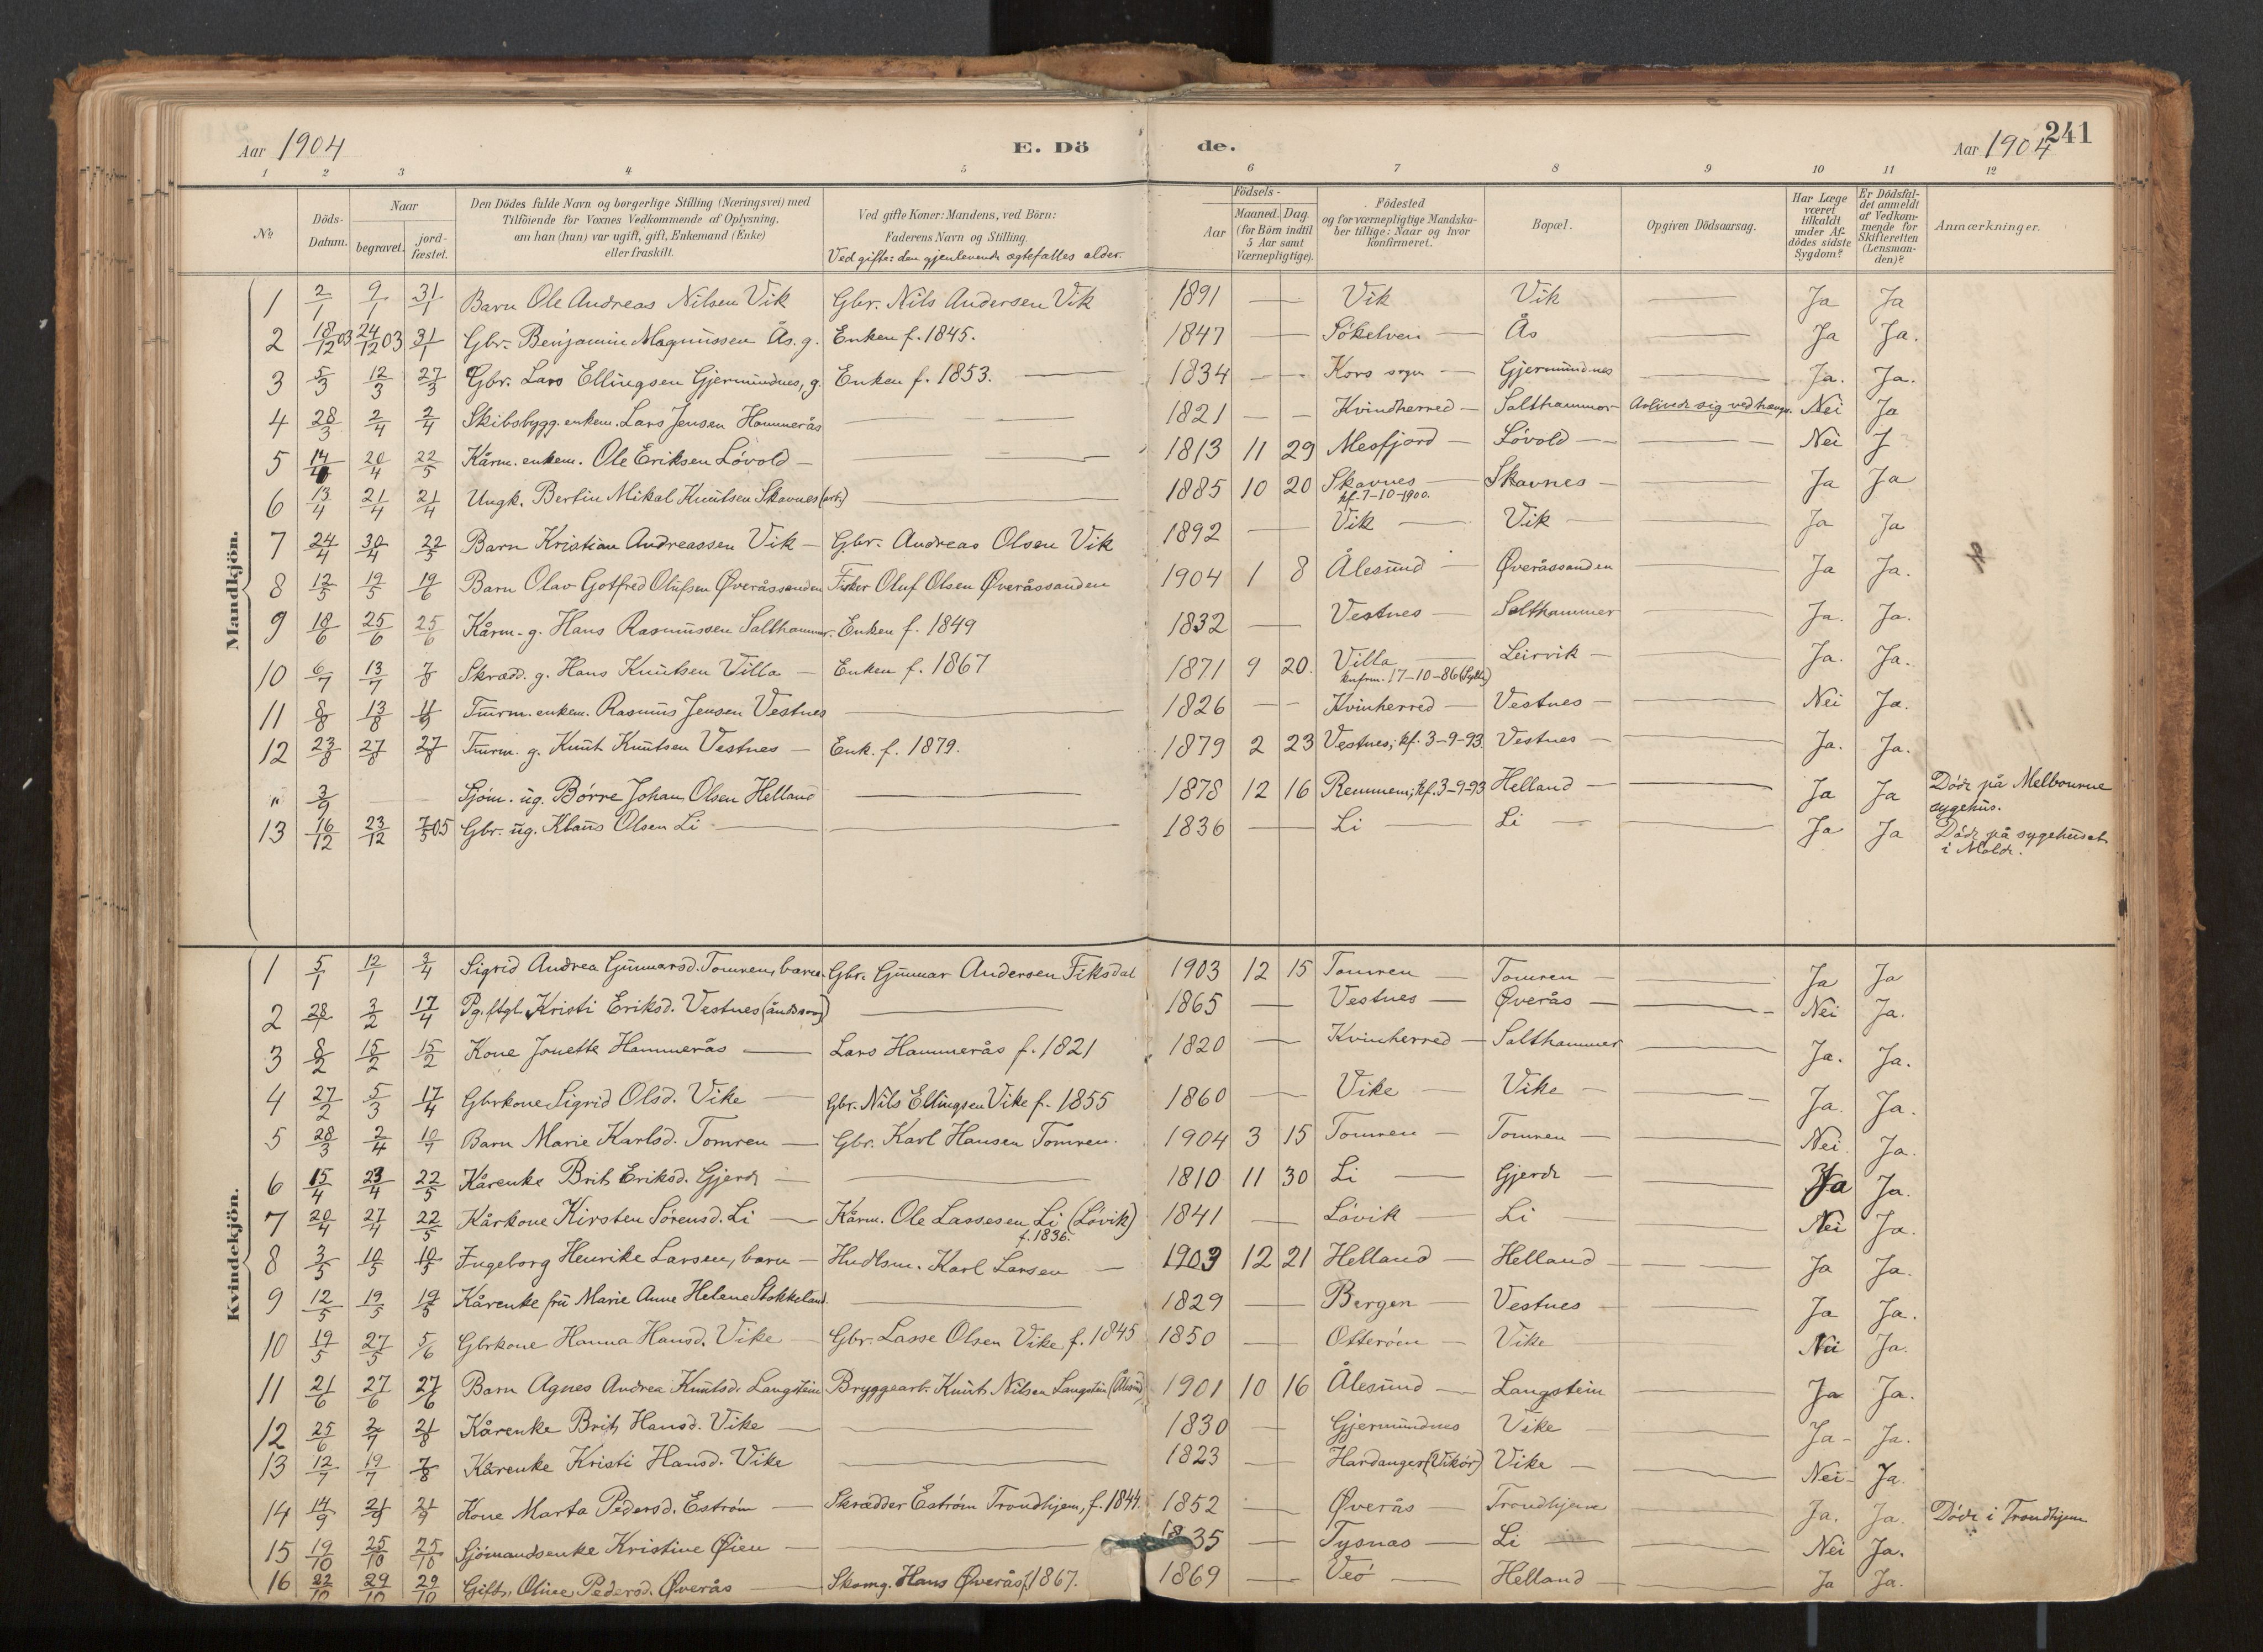 Aar 1904 E. Dö de. Aar 1904 241
1 2 3 4 5 6 7 8 9 10 11 12
No
Döds-Datum.
Naar
begravet.
jord-fæstet.
Den Dödes fulde Navn og borgerlige Stilling (Næringsvei) med
Tilföiende for Voxnes Vedkommende af Oplysning,
om han (hun) var ugift, gift, Enkemand (Enke)
eller fraskilt.
Ved gifte Koner: Mandens, ved Börn:
Faderens Navn og Stilling.
Ved gifte: den gjenlevende ægtefælles alder.
Aar
Födsels-
Maaned. Dag.
(for Börn indtil
5 Aar samt
Værnepligtige).
Födested
og for værnepligtige Mandska-
ber tillige: Naar og hvor
konfirmeret.
Bopæl.
Opgiven Dödsaarsag.
Har Læge
været
tilkaldt
under Af-
dödes sidste
Sygdom?
Er Dödsfal-
det anmeldt
af Vedkom-
mende for
Skifteretten
(Lensman-
den)?
Anmærkninger.
Mandkjön.
1 2/1 9/1 31/1 Barn Ole Andreas Nilsen Vik Gbr. Nils Andersen Vik 1891 — Vik Vik — Ja Ja
2 18/12 03 24/12 03 31/1 Gbr. Benjamin Magnussen Ås. g. Enken f. 1845. 1847 — Sökelven — Ås — Ja Ja.
3 5/3 12/3 27/3 Gbr. Lars Ellingsen Gjermundnes, g. Enken f. 1853. — 1834 — Kors sogn — Gjermundnes — Ja. Ja.
4 28/3 2/4 2/4 Skibsbygg. enkem. Lars Jensen Hammerås — 1821 — — Kvindherred — Salthammer — Avlivede sig ved hængn. Nei Ja
5 14/4 20/4 22/5 Kårm. enkem. Ole Eriksen Lövold — — 1813 11 29 Mesfjord — Lövold — — Nei J
6 13/4 21/4 21/4 Ungk. Bertin Mikal Knutsen Skavnes (arb.) — 1885 10 20 Skavnes — Skavnes — — Ja Ja
kf. 7-10-1900.
7 24/4 30/4 22/5 Barn Kristian Andreassen Vik — Gbr. Andreas Olsen Vik 1892 — Vik — Vik — — Ja Ja
8 12/5 19/5 19/6 Barn Olav Gotfred Olufsen Øveråssanden Fisker Oluf Olsen Øveråssanden 1904 1 8 Ålesund — Øveråssanden — Ja Ja.
9 18/6 25/6 25/6 Kårm. g. Hans Rasmussen Salthammer. Enken f. 1849 1832 — Vestnes — Salthammer — Ja. Ja.
10 6/7 13/7 7/8 Skrædd. g. Hans Knutsen Villa — Enken f. 1867 1871 9 20. Villa — Leirvik — — Ja. Ja.
knfrm. 17-10-86 (Sylte)
11 8/8 13/8 11/9 Tmrm. enkem. Rasmus Jensen Vestnes — 1826 — — Kvinherred — Vestnes — — Nei Ja.
12 23/8 27/8 27/8 Tmrm. g. Knut Knutsen Vestnes — Enk. f. 1879. 1879 2 23 Vestnes; kf. 3-9-93. Vestnes — — Ja. Ja.
" 3/9 Sjöm. ug. Börre Johan Olsen Helland — 1878 12 16 Remmem; kf. 3-9-93 Helland — — Ja Ja Döde på Melbourne
sygehus.
13 16/12 23/12 7/5 05 Gbr. ug. Klaus Olsen Li — — 1836 — Li — Li — — Ja Ja Döde på sygehuset
i Molde.
Kvindekjön.
1 5/1 12/1 3/4 Sigrid Andrea Gunnarsd. Tomren, barn. Gbr. Gunnar Andersen Fiksdal 1903 12 15 Tomren — Tomren — — Ja Ja
2 28/1 3/2 17/4 Pg. ftgl. Kristi Eriksd. Vestnes (åndssvag) — 1865 — Vestnes — Øverås — — Nei Ja.
3 8/2 15/2 15/2 Kone Jonette Hammerås — Lars Hammerås f. 1821 1820 — Kvinherred — Salthammer — Ja. Ja.
4 27/2 5/3 17/4 Gbrkone Sigrid Olsd. Vike — Gbr. Nils Ellingsen Vike f. 1855 1860 — Vike — Vike — — Ja. Ja.
5 28/3 2/4 10/7 Barn Marie Karlsd. Tomren — Gbr. Karl Hansen Tomren. 1904 3 15 Tomren — Tomren — — Nei. Ja.
6 15/4 23/4 22/5 Kårenke Brit Eriksd. Gjerde — — 1810 11 30 Li — Gjerde — — Ja Ja.
7 20/4 27/4 22/5 Kårkone Kirsten Sörensd. Li — Kårm. Ole Lassesen Li (Lövik) 1841 — Lövik — Li — — Nei Ja.
f. 1836.
8 3/5 10/5 10/5 Ingeborg Henrike Larsen, barn — Hndlsm. Karl Larsen — 1903 12 21 Helland — Helland — — Ja Ja.
9 12/5 19/5 19/5 Kårenke fru Marie Anne Helene Stokkeland. — 1829 — Bergen — Vestnes — — Ja Ja.
10 19/5 27/5 5/6 Gbrkone Hanna Hansd. Vike — Gbr. Lasse Olsen Vike f. 1845 1850 — Otteröen — Vike — Nei Ja.
11 21/6 27/6 27/6 Barn Agnes Andrea Knutsd. Langstein Bryggearb. Knut Nilsen Langstein (Ålesund) 1901 10 16 Ålesund — Langstein — Ja Ja.
12 25/6 2/7 21/8 Kårenke Brit Hansd. Vike — — 1830 — Gjermundnes Vike — — Ja — Ja.
13 12/7 19/7 7/8 Kårenke Kristi Hansd. Vike — 1823 — Hardanger (Vikör) Vike — — Nei — Ja.
14 14/9 21/9 21/9 Kone Marta Pedersd. Eström — Skrædder Eström Trondhjem, f. 1844. 1852 — Øverås — Trondhjem — Ja. Ja. Döde i Trondhjem
15 19/10 25/10 25/10 Sjömandsenke Kristine Øien — — 1835 — Tysnas — Li — — Nei Ja.
16 22/10 29/10 29/10 Gifte, Oline Pedersd. Øverås — Skomg. Hans Øverås f. 1867. 1869 — Veö — Helland — — Ja Ja.